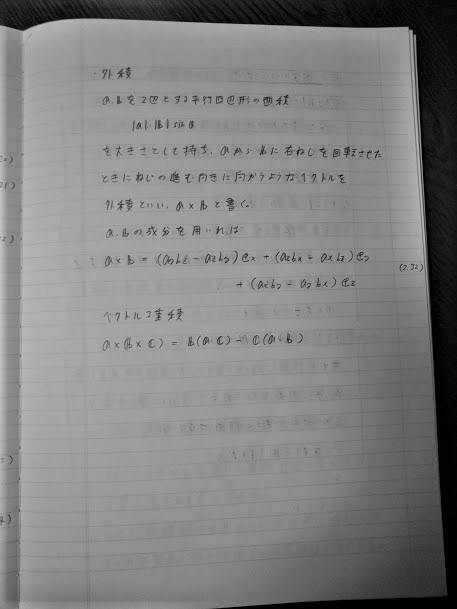 ・外積
a, b を2辺とする平行四辺形の面積
|a|・|b| sin θ
を大きさとして持ち、a から b に右ねじを回転させた
ときにねじの進む向きに向かうようなベクトルを
外積といい、a × b と書く。
a, b の成分を用いれば
a × b = (aybz - azby) ex + (azbx - axbz) ey
+ (axby - aybx) ez
(2.32)
ベクトル3重積
a × (b × c) = b(a・c) - c(a・b)